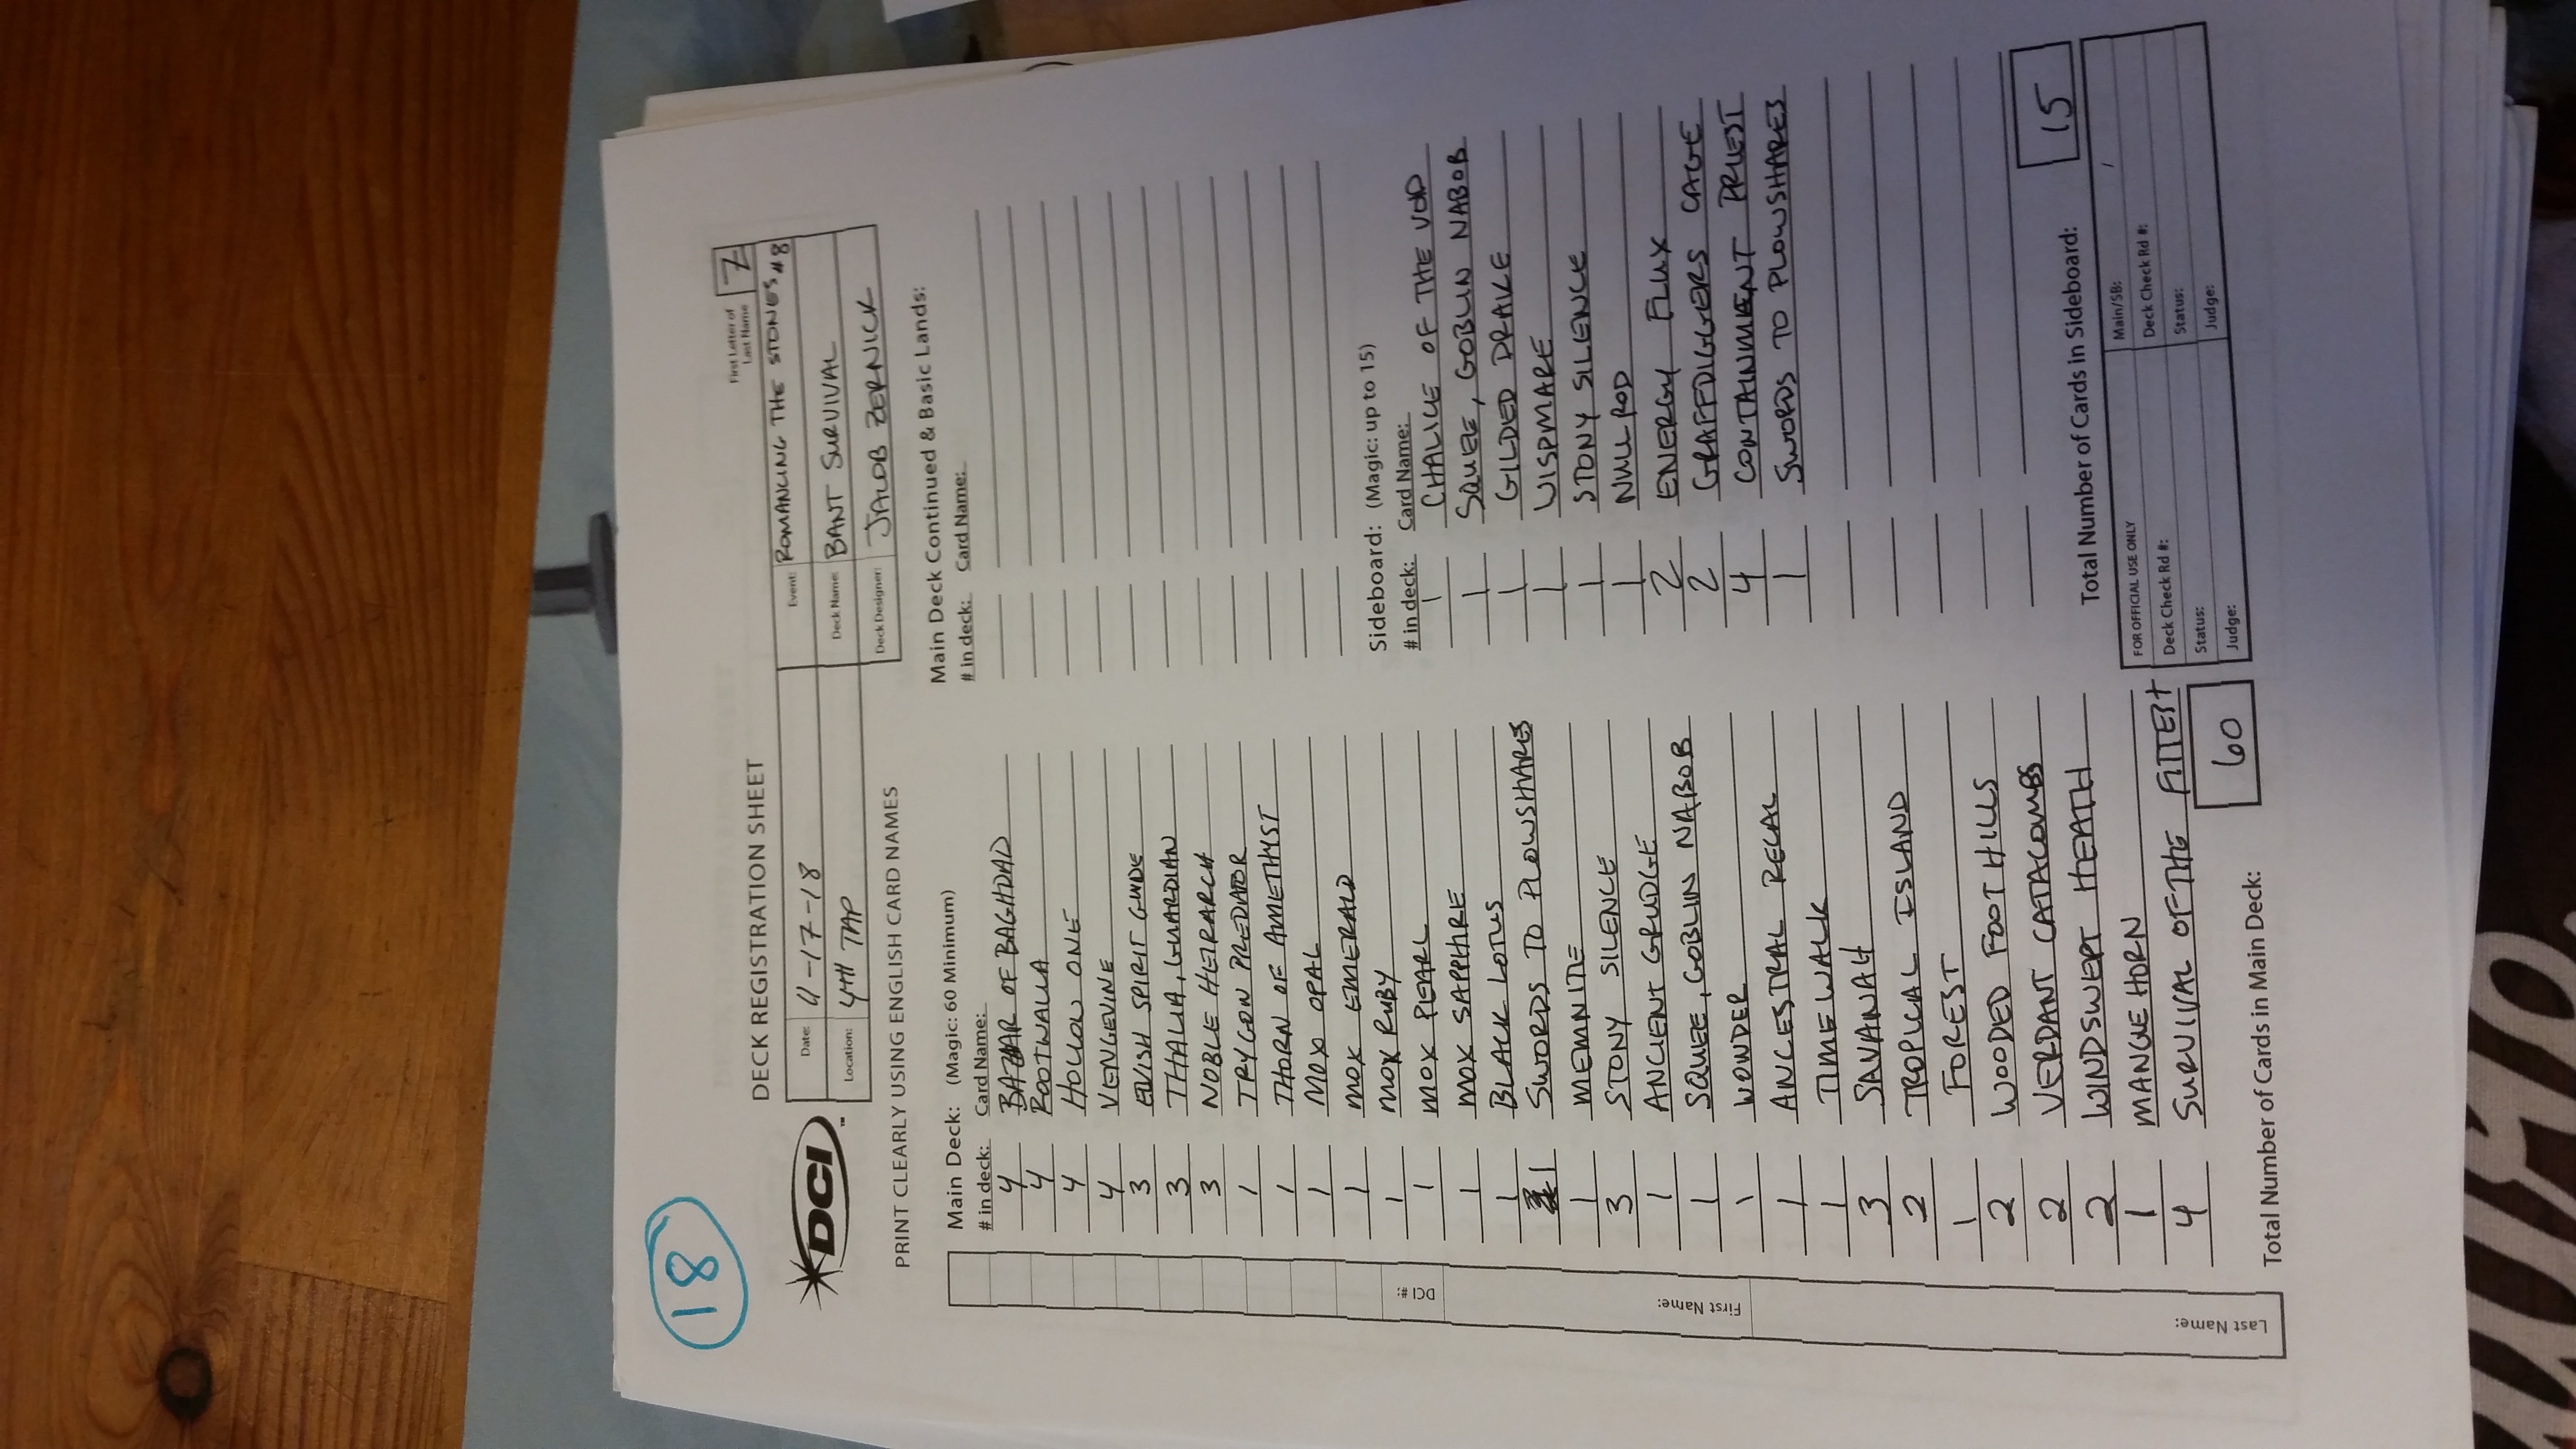 18
DECK REGISTRATION SHEET
First Letter of
Last Name
Z
DCI™
Date: 11-17-18
Event: ROMANCING THE STONES #8
Location: 4TH TAP
Deck Name: BANT SURVIVAL
Deck Designer: JACOB ZERNICK
PRINT CLEARLY USING ENGLISH CARD NAMES
Main Deck: (Magic: 60 Minimum)
# in deck: Card Name:
4 BAZAAR OF BAGHDAD
4 ROOTWALLA
4 HOLLOW ONE
4 VENGEVINE
3 ELVISH SPIRIT GUIDE
3 THALIA, GUARDIAN
3 NOBLE HEIRARCH
1 TRYGON PREDATOR
1 THORN OF AMETHYST
1 MOX OPAL
1 MOX EMERALD
1 MOX RUBY
1 MOX PEARL
1 MOX SAPPHIRE
1 BLACK LOTUS
1 SWORDS TO PLOWSHARES
1 MEMNITE
3 STONY SILENCE
1 ANCIENT GRUDGE
1 SQUEE, GOBLIN NABOB
1 WONDER
1 ANCESTRAL RECAL
1 TIME WALK
3 SAVANAH
2 TROPICAL ISLAND
1 FOREST
2 WOODED FOOTHILLS
2 VERDANT CATACOMBS
2 WINDSWEPT HEATH
1 MANGLEHORN
4 SURVIVAL OF THE FITTEST
Total Number of Cards in Main Deck: 60
Main Deck Continued & Basic Lands:
# in deck: Card Name:
Sideboard: (Magic: up to 15)
# in deck: Card Name:
1 CHALICE OF THE VOID
1 SQUEE, GOBLIN NABOB
1 GILDED DRAKE
1 WISPMARE
1 STONY SILENCE
1 NULL ROD
2 ENERGY FLUX
2 GRAFFDIGGERS CAGE
4 CONTAINMENT PRIEST
1 SWORDS TO PLOWSHARES
Total Number of Cards in Sideboard: 15
FOR OFFICIAL USE ONLY
Main/SB: /
Deck Check Rd #:
Deck Check Rd #:
Status:
Status:
Judge:
Judge:
DCI #:
First Name:
Last Name: